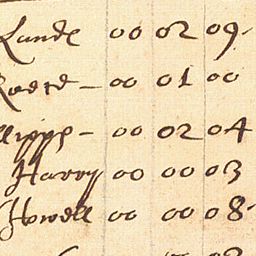 Lande 00 02 09
00 01 00
llipps – 00 02 04
Harry 00 00 03
Howell 00 00 08